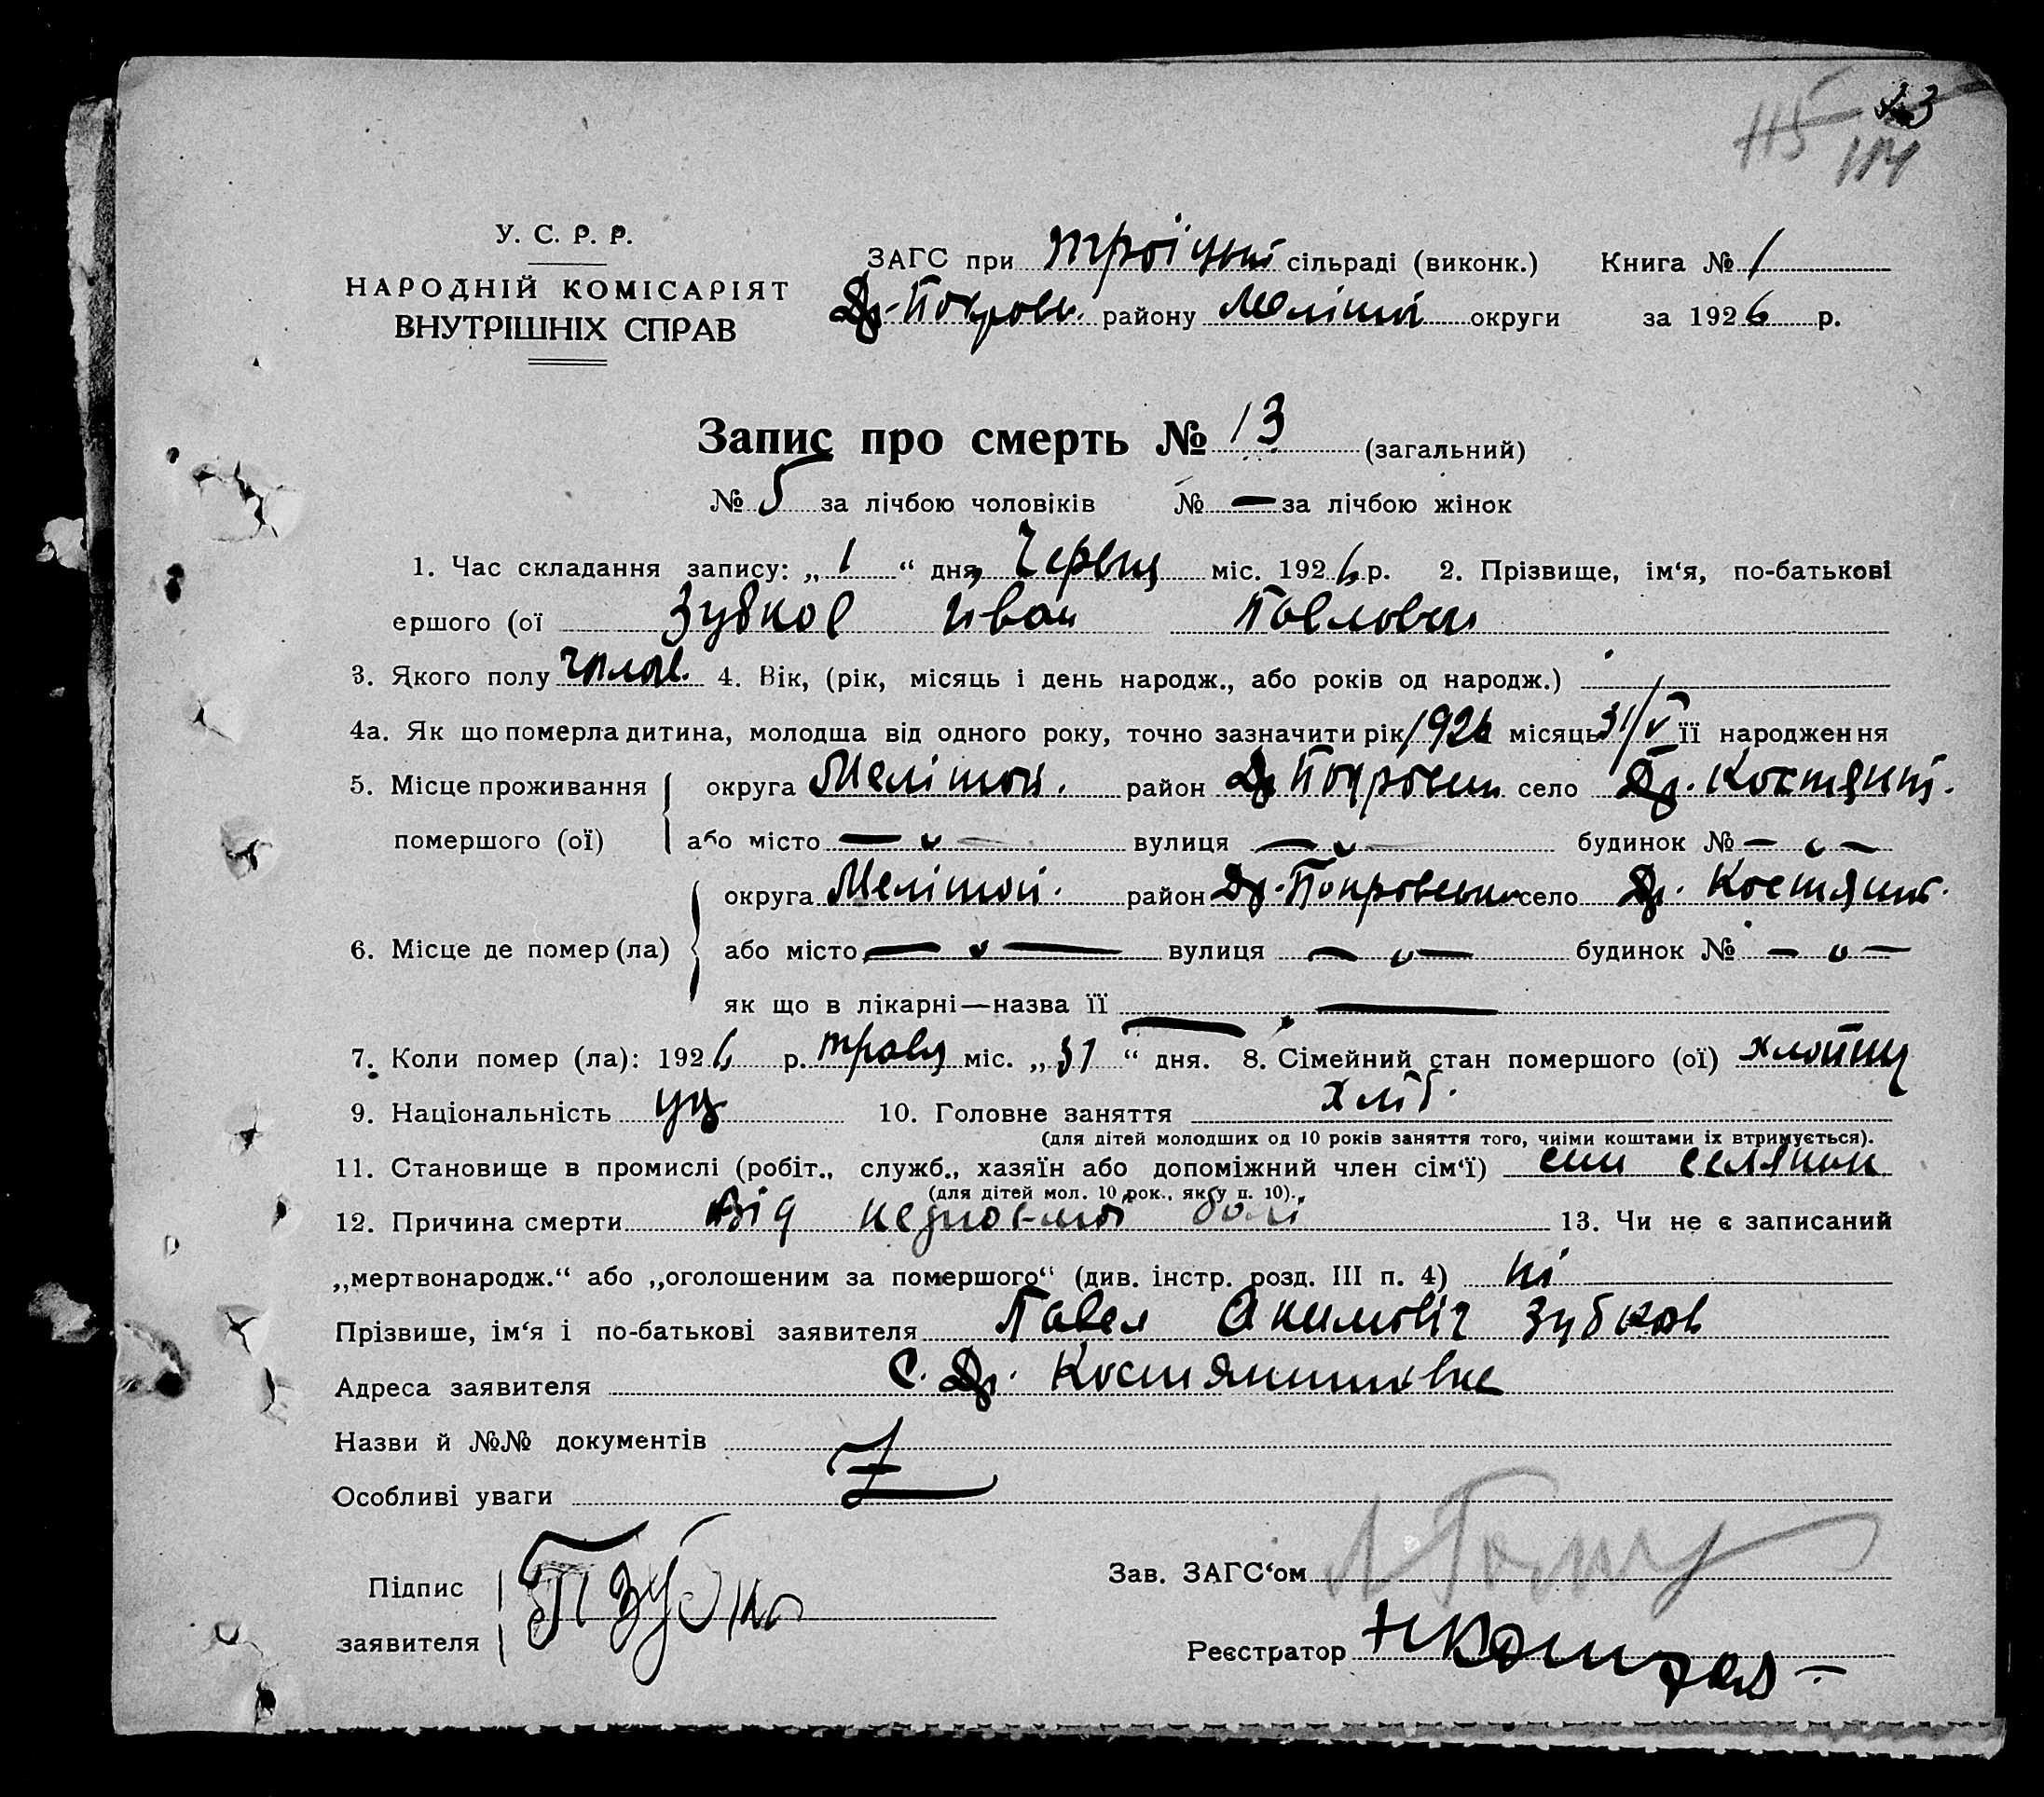 23
115
114
У. С. Р. Р.
НАРОДНІЙ КОМІСАРІЯТ
ВНУТРІШНІХ СПРАВ
ЗАГС при Троіцькі сільраді (виконк.) Книга № 1
Др-Покров. району Меліт округи за 1926 р.
Запис про смерть № 13 (загальний)
№ 5 за лічбою чоловіків № — за лічбою жінок
1. Час складання запису: „ 1 “ дня Червця міс. 1926 р. 2. Прізвище, ім‘я, по-батькові
ершого (ої Зубков Иван Павлович
3. Якого полу чолов. 4. Вік, (рік, місяць і день народж., або років од народж.)
4а. Як що померла дитина, молодша від одного року, точно зазначити рік 1926 місяць 31/V її народження
5. Місце проживання округа Мелітоп. район Др Покровськ село Др. Костянт.
помершого (ої) або місто — „ — вулиця — „ — будинок № — „ —
округа Мелітоп. район Др-Покровськ село Др. Костянт.
6. Місце де помер (ла) або місто — „ — вулиця — „ — будинок № — „ —
як що в лікарні—назва її —
7. Коли помер (ла): 1926 р. травня міс. „ 31 “ дня. 8. Сімейний стан помершого (ої) хлопец
9. Національність укр 10. Головне заняття хліб.
(для дітей молодших од 10 років заняття того, чиіми коштами їх втримується).
11. Становище в промислі (робіт., служб., хазяїн або допоміжний член сім‘ї) син селянин
(для дітей мол. 10 рок., як у п. 10).
12. Причина смерти Від 13. Чи не є записаний
„мертвонародж.“ або „оголошеним за помершого“ (див. інстр. розд. III п. 4) ні
Прізвише, ім‘я і по-батькові заявителя Павел Акимовіч Зубков
Адреса заявителя С. Др. Костянтиновке
Назви й №№ документів
Особливі уваги
Підпис
заявителя
ПЗубко
Зав. ЗАГС‘ом
Реєстратор